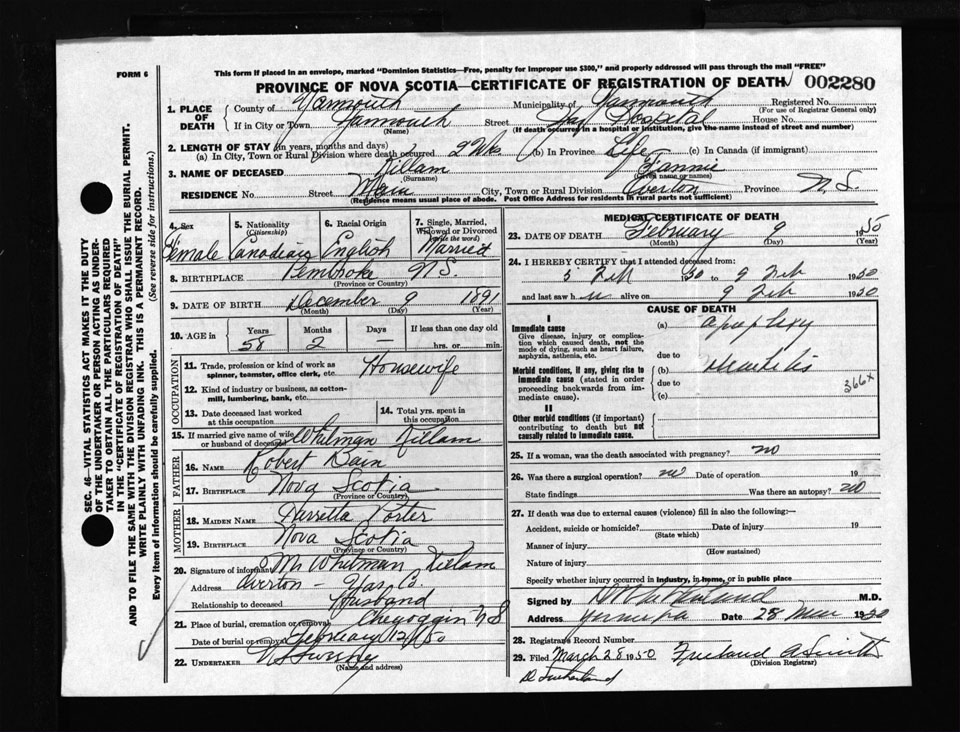 FORM 6
This form if placed in an envelope, marked "Dominion Statistics—Free, penalty for improper use $300," and properly addressed will pass through the mail "FREE"
PROVINCE OF NOVA SCOTIA—CERTIFICATE OF REGISTRATION OF DEATH 002280
1. PLACE OF DEATH County of Yarmouth Municipality of Yarmouth Registered No. (For use of Registrar General only)
If in City or Town Yarmouth (Name) Street Hospital House No.
(If death occurred in a hospital or institution, give the name instead of street and number)
2. LENGTH OF STAY (in years, months and days)
(a) In City, Town or Rural Division where death occurred 2 Wks. (b) In Province Life (c) In Canada (if immigrant)
3. NAME OF DECEASED Killam (Surname) Fannie (Given name or names)
RESIDENCE No. Street Main City, Town or Rural Division Overton Province N.S.
(Residence means usual place of abode. Post Office Address for residents in rural parts not sufficient)
4. Sex Female
5. Nationality (Citizenship) Canadian
6. Racial Origin English
7. Single, Married, Widowed or Divorced (write the word) Married
8. BIRTHPLACE Pembroke N.S. (Province or Country)
9. DATE OF BIRTH December 9 1891 (Month) (Day) (Year)
10. AGE in Years Months Days If less than one day old
58 2 — hrs. or min.
OCCUPATION
11. Trade, profession or kind of work as spinner, teamster, office clerk, etc. Housewife
12. Kind of industry or business, as cotton-mill, lumbering, bank, etc.
13. Date deceased last worked at this occupation
14. Total yrs. spent in this occupation
15. If married give name of wife or husband of deceased Whitman Killam
FATHER
16. NAME Robert Bain
17. BIRTHPLACE Nova Scotia (Province or Country)
MOTHER
18. MAIDEN NAME Porter
19. BIRTHPLACE Nova Scotia (Province or Country)
20. Signature of informant Mr Whitman Killam
Address Overton — Yar. Co.
Relationship to deceased Husband
21. Place of burial, cremation or removal Chegoggin N.S
Date of burial or removal February 12/50
22. UNDERTAKER Sweeny (Name and address)
MEDICAL CERTIFICATE OF DEATH
23. DATE OF DEATH February 9 1950 (Month) (Day) (Year)
24. I HEREBY CERTIFY that I attended deceased from:
3 Feb 1950 to 9 Feb 1950
and last saw h alive on 9 Feb 1950
CAUSE OF DEATH
I
Immediate cause (a) apoplexy
Give disease, injury or complication which caused death, not the mode of dying, such as heart failure, asphyxia, asthenia, etc.
due to
Morbid conditions, if any, giving rise to immediate cause (stated in order proceeding backwards from immediate cause). (b)
due to
(c)
II
Other morbid conditions (if important) contributing to death but not causally related to immediate cause.
25. If a woman, was the death associated with pregnancy? no
26. Was there a surgical operation? no Date of operation 19
State findings Was there an autopsy? no
27. If death was due to external causes (violence) fill in also the following:—
Accident, suicide or homicide? Date of injury 19
(State which)
Manner of injury
(How sustained)
Nature of injury
Specify whether injury occurred in industry, in home, or in public place
Signed by M.D.
Address Date 28 Mar 1950
28. Registrar's Record Number
29. Filed March 28 1950 Freeland A Smith (Division Registrar)
D Sutherland
SEC. 46—VITAL STATISTICS ACT MAKES IT THE DUTY
OF THE UNDERTAKER OR PERSON ACTING AS UNDERTAKER TO OBTAIN ALL THE PARTICULARS REQUIRED
IN THE "CERTIFICATE OF REGISTRATION OF DEATH"
AND TO FILE THE SAME WITH THE DIVISION REGISTRAR WHO SHALL ISSUE THE BURIAL PERMIT.
WRITE PLAINLY WITH UNFADING INK. THIS IS A PERMANENT RECORD.
Every item of information should be carefully supplied. (See reverse side for instructions.)